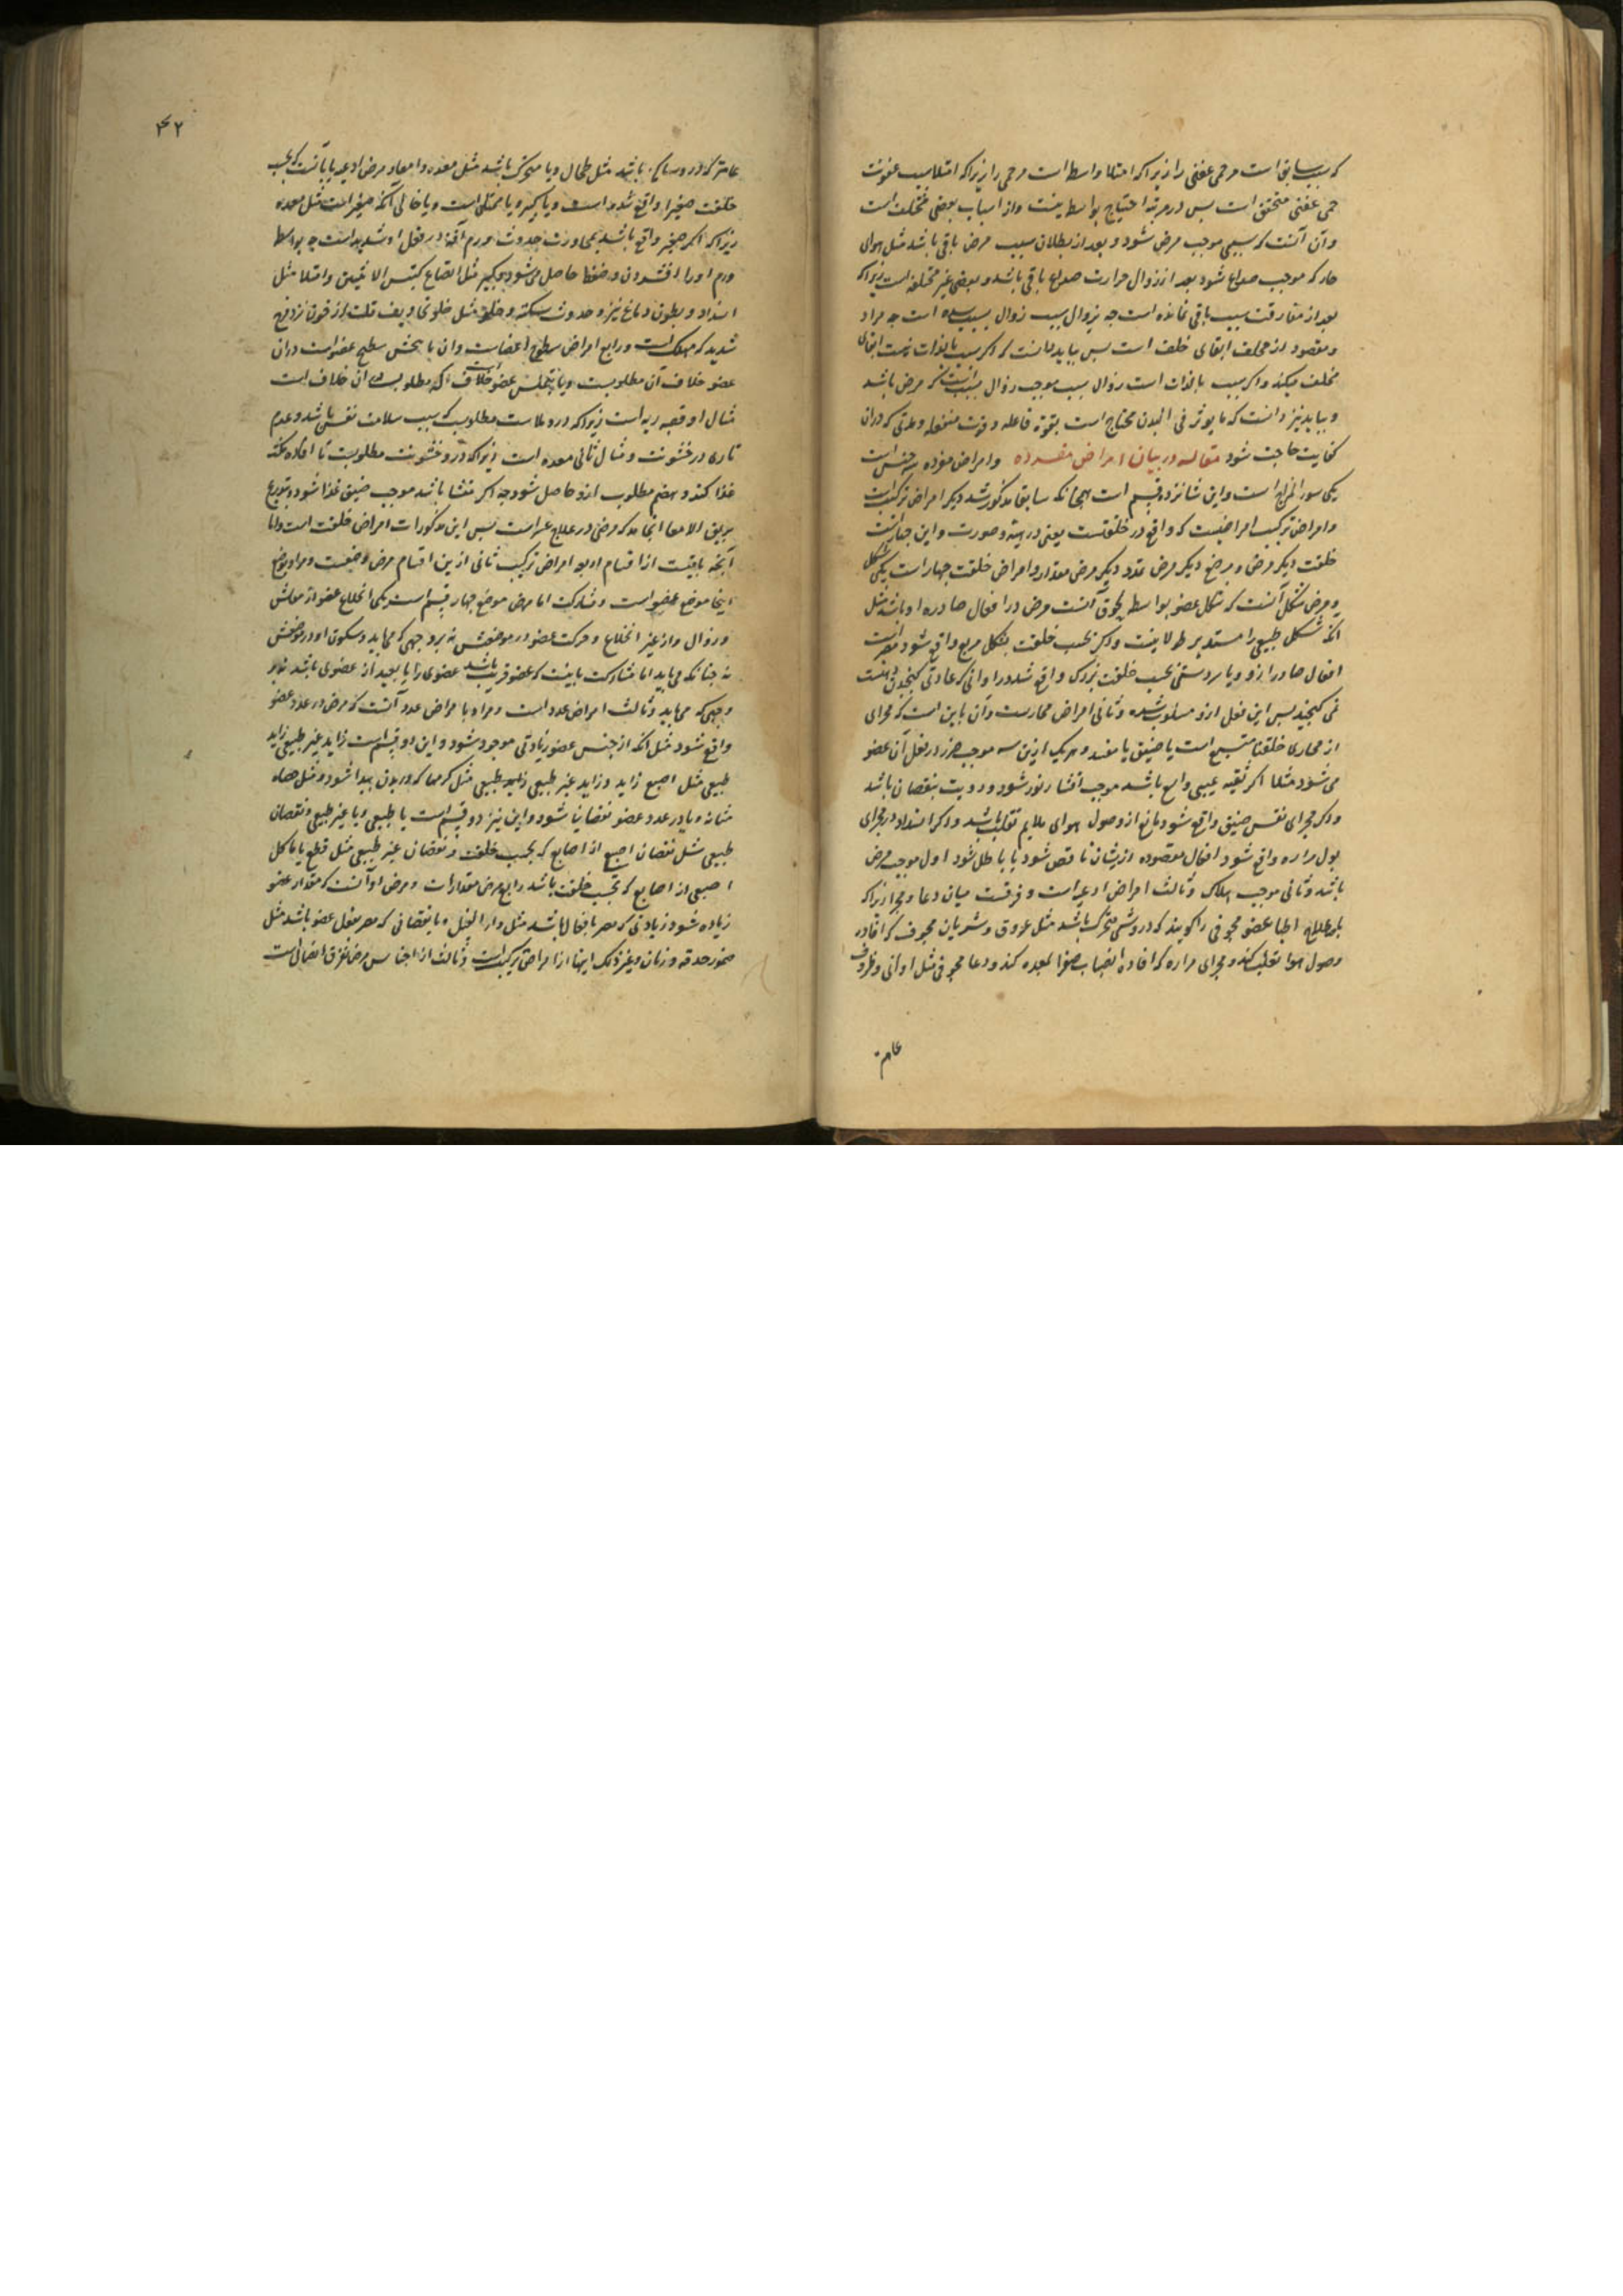 که سبب سابق است مر حمی عفنی را زیرا که امتلا واسطه است مر حمی را زیرا که امتلا سبب عفونت
حمی عفنی متحقق است پس در مرتبه احتیاج بواسطه نیست و از اسباب بعضی مختلف است
و آن آنست که سببی موجب مرض شود و بعد از بطلان سبب مرض باقی باشد مثل هوای
حار که موجب صداع شود بعد از زوال حرارت صداع باقی باشد و بعضی غیر مختلف است زیرا که
بعد از مفارقت سبب باقی نمانده است چه بزوال سبب زوال مسبب است چه مراد
و مقصود از مخلف ابقای خلف است پس بباید دانست که اگر سبب بالذات نیست ابقای
مخلف میکند و اگر سبب بالذات است زوال سبب موجب زوال مسبب است که مرض باشد
و بباید نیز دانست که ما یوثر فی البدن محتاج است بقوة فاعله و قوت منفعله و مدتی که در آن
کفایت حاجت شود مقاله در بیان امراض مفرده وامراض مفرده سه جنس است
یکی سوء المزاج است و این شانزده قسم است همچنانکه سابقا مذکور شد دیگر امراض ترکیب است
و امراض ترکیب امراضیست که واقع در خلقتست یعنی در هیئة و صورت و این چهار است
خلقت دیگر مرض وضع دیگر مرض عدد دیگر مرض مقدار و امراض خلقت چهار است یکی شکل
و مرض شکل آنست که شکل عضو بواسطه لحوق آفت مرض در افعال صادره او باشد مثل
آنکه شکل طبیعی را مستدیر طولانیست و دیگر بحسب خلقت بشکل مربع واقع شود مضر است
افعال صادر ازو و یا سر دستی بحسب خلقت بزرگ واقع شد در اوانی که عادتی گنجیدن هست
نمی گنجد پس این فعل ازو مسلوب شده و ثانی امراض مجاریست و آن باین است که مجرای
از مجاری خلقتا متسع است یا ضیق یا منسد و هر یک ازین سه موجب ضرر در فعل آن عضو
می شود مثلا اگر ثقبه عیبی واسع باشد موجب انتشار نور شود و رویت بنقصان باشد
و اگر مجرای نفس ضیق واقع شود مانع از وصول هوای ملایم بقلب باشد و اگر انسداد در مجرای
بول مراره واقع شود افعال مقصوده ازیشان ناقص شود یا باطل شود اول موجب مرض
باشد و ثانی موجب هلاک و ثالث امراض اوعیه است و فرقست میان وعا و مجرا زیرا که
باصطلاح اطبا عضو مجوفی را گویند که در وشئ متحرک باشد مثل عروق و شریان مجوف که افاده
وصول هوا بقلب کند و مجرای مراره که افاده انصباب صفرا بمعده کند و وعا مجوفی مثل اوانی و ظروف
عامتر
۴۲
عامتر که درو ساکن باشد مثل طحال و یا متحرک باشد مثل معده و امعا و مرض اوعیه یا بآنست که بحسب
خلقت صغیرا واقع شده است و یا کبیر و یا ممتلی است و یا خالی آنکه صغیر است مثل معده
زیرا که اگر صغیر واقع باشد بمجاورت حدوث ورم آفة در فعل او شدید است چه بواسطه
ورم او را افشردن و ضغط حاصل می شود و کبیر مثل اتساع کیس الانثیین و امتلا مثل
انسداد و بطون دماغ نیز و حدوث سکته و خلو مثل خلو تجاویف قلب از خون نزد فرح
شدید که مهلک است و رابع امراض سطوح اعضاست و آن یا بخش سطح عضوست در آن
عضو خلاف آن مطلوبست و یا بتملس عضو است خلاف آنکه مطلوب ازان خلاف است
مثال او قصبه ریه است زیرا که درو ملاست مطلوبست که سبب سلامت نفس باشد و عدم
تاری در خشونت و مثال ثانی معده است زیرا که درو خشونت مطلوبست تا افاده مکث
غذا کند و هضم مطلوب ازو حاصل شود چه اگر منشا باشد موجب ضیق غذا شود و بتدریج
بزلق الامعا انجامد که مرضی در علاج عسر است پس این مذکورات امراض خلقت است و اما
آنچه باقیست از اقسام اربعه امراض ترکیب ثانی ازین اقسام مرض وضعست و مراد بوضع
اینجا موضع عضو است و مشارکت اما مرض موضع چهار قسم است یکی انخلاع عضو از محلش
و زوال و از غیر انخلاع و حرکت عضو در موضعش نه بروجهی که می باید و سکون او در موضعش
نه چنانکه می باید اما مشارکت باینست که عضو قریب باشد عضوی را یا بعید از عضوی باشد نه بر
وجهی که می باید و ثالث امراض عدد است و مراد بامراض عدد آنست که مرض در عدد عضو
واقع شود مثل آنکه از جنس عضو زیادتی موجود شود و این دو قسم است زاید غیر طبیعی زاید
طبیعی مثل اصبع زاید و زاید غیر طبیعی زاید طبیعی مثل کرمها که در بدن پیدا شود و مثل حصاه
مثانه و یا در عدد عضو نقصانیا شود و این نیز دو قسم است یا طبیعی و یا غیر طبیعی و نقصان
طبیعی مثل نقصان اصبع از اصابع که بحسب خلقت و نقصان غیر طبیعی مثل قطع یا تاکل
اصبعی از اصابع که بحسب خلقت باشد رابع مرض مقدارات و مرض او آنست که مقدار عضو
زیاده شود زیادتی که مضر بافعال باشد مثل داء الفیل و یا نقصانی که مضر بفعل عضو باشد مثل
ضمور حدقه و زبان و غیر ذلک اینها از امراض ترکیب است و ثالث از اجناس مرض تفرق اتصال است